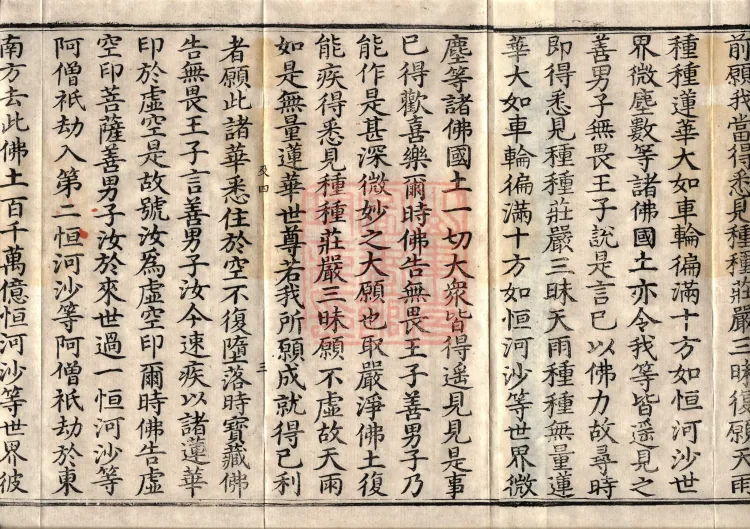 前願我當得悉見種種莊嚴三昧復願天雨
種種蓮華大如車輪徧滿十方如恒河沙世
界微塵數等諸佛國土亦令我等皆遥見之
善男子無畏王子說是言已以佛力故尋時
即得悉見種種莊嚴三昧天雨種種無量蓮
華大如車輪徧滿十方如恒河沙等世界微
塵等諸佛國土一切大衆皆得遥見見是事
已得歡喜樂爾時佛告無畏王子善男子乃
能作是甚深微妙之大願也取嚴淨佛土復
能疾得悉見種種莊嚴三昧願不虛故天雨
如是無量蓮華世尊若我所願成就得已利
者願此諸華悉住於空不復墮落時寶藏佛
告無畏王子言善男子汝今速疾以諸蓮華
印於虛空是故號汝為虛空印爾時佛告虛
空印菩薩善男子汝於來世過一恒河沙等
阿僧祇劫入第二恒河沙等阿僧祇劫於東
南方去此佛土百千萬億恒河沙等世界彼
四
三